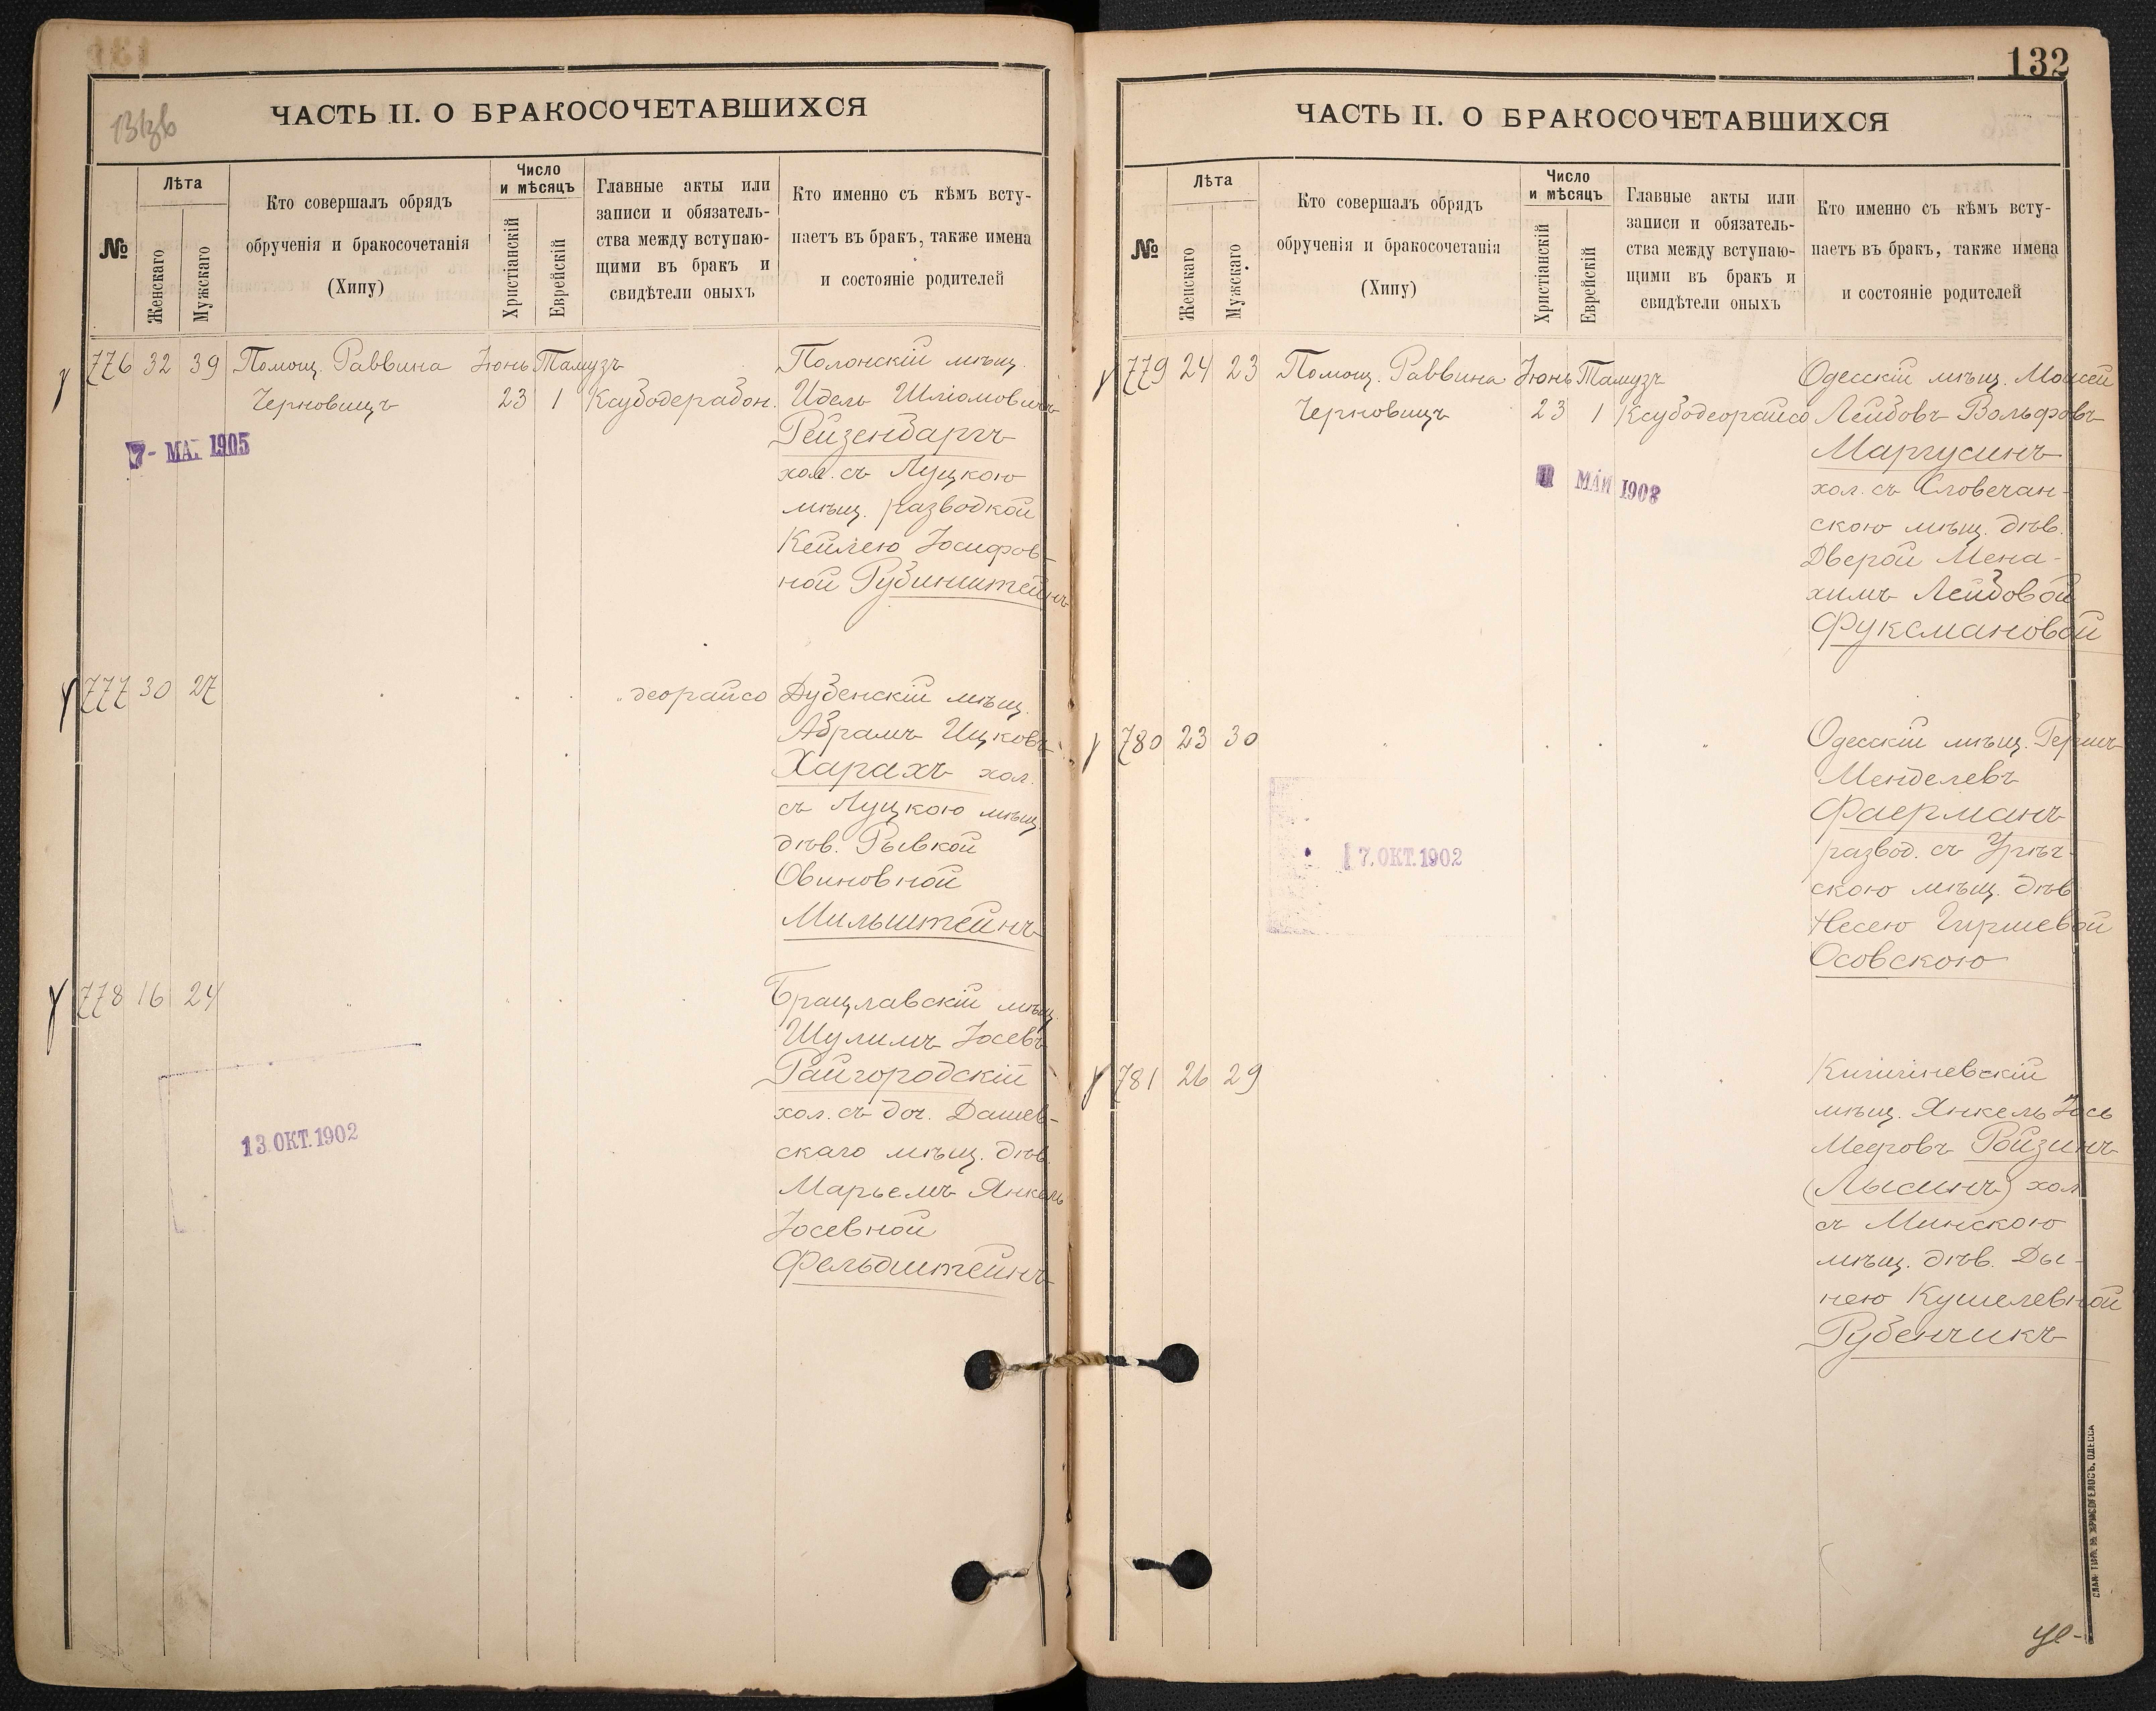 131об
ЧАСТЬ II. О БРАКОСОЧЕТАВШИХСЯ
№
Лѣта
Женскаго
Мужскаго
Кто совершалъ обрядъ
обрученія и бракосочетанія
(Хипу)
Число
и мѣсяцъ
Христіанскій
Еврейскій
Главные акты или
записи и обязатель-
ства между вступаю-
щими въ бракъ и
свидѣтели оныхъ
Кто именно съ кѣмъ всту-
паетъ въ бракъ, также имена
и состояніе родителей
776 32 39 Помощ. Раввина Іюнь Тамузъ Полонскій мѣщ.
Черновицъ 23 1 Ксубодерабон. Идель Шліомовичъ
Рейзенбаргъ
7- МА. 1905
хол. съ Луцкою
мѣщ. разводкой
Кейлею Іосифов-
ной Рубинштейнъ
777 30 27 " деорайсо Дубенскій мѣщ.
Абрамъ Ицковъ
Харахъ хол.
съ Луцкою мѣщ.
дѣв. Рывкой
Овиновной
Мильштейнъ
778 16 24 Брацлавскій мѣщ.
Шулимъ Іосевъ
Райгородскій
хол. съ доч. Дашев-
13 ОКТ. 1902
скаго мѣщ. дѣв.
Марьемъ Янкель
Іосевной
Фельдштейнъ
132
ЧАСТЬ II. О БРАКОСОЧЕТАВШИХСЯ
№
Лѣта
Женскаго
Мужскаго
Кто совершалъ обрядъ
обрученія и бракосочетанія
(Хипу)
Число
и мѣсяцъ
Христіанскій
Еврейскій
Главные акты или
записи и обязатель-
ства между вступаю-
щими въ бракъ и
свидѣтели оныхъ
Кто именно съ кѣмъ всту-
паетъ въ бракъ, также имена
и состояніе родителей
779 24 23 Помощ. Раввина Іюнь Тамузъ Одесскій мѣщ. Моисей
Черновицъ 23 1 Ксубодеорайсо Лейбовъ Вольфовъ
Маргусинъ
МАЙ 1908
хол. съ Словечан-
скою мѣщ. дѣв.
Дверой Мена-
химъ Лейбовой
Фуксмановой
780 23 30 " Одесскій мѣщ. Гершъ
Менделевъ
Фаерманъ
17. ОКТ. 1902
развод. съ Угнѣч-
скою мѣщ. дѣв.
Несею Гиршевой
Осовскою
781 26 29 Кишиневскій
мѣщ. Янкель Іось
Мееровъ Ройзинъ
(Лысинъ) хол.
съ Минскою
мѣщ. дѣв. Ды-
нею Кушелевной
Рубенчикъ
СЛАВ. ТИП. М. ХРИСОГЕЛОСЪ, ОДЕССА